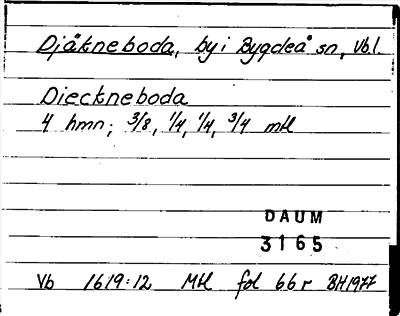 Djäkneboda, by i Bygdeå sn, Vbl.
Dieckneboda
4 hmn; 3/8, 1/4, 1/4, 3/4 mtl
DAUM
3165
Vb 1619:12 Mtl fol 66 r BH1977